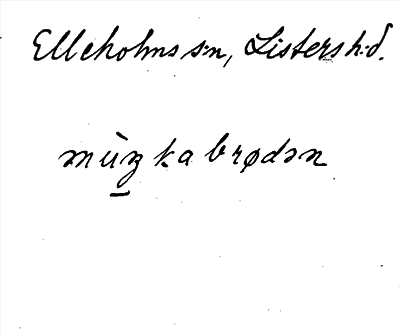 Elleholms s:n, Listers h:d.
mùŋkabrødən